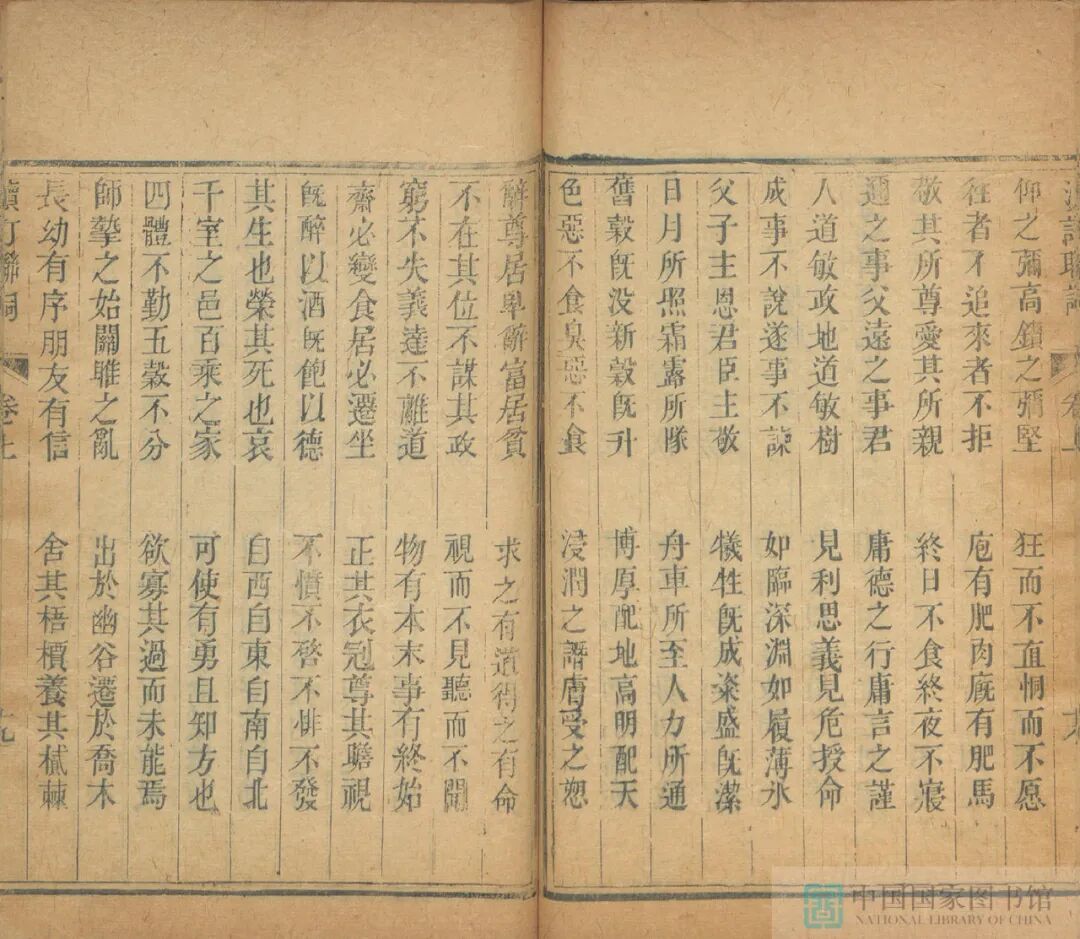 仰之彌高鑽之彌堅 狂而不直恫而不愿
往者不追來者不拒 庖有肥肉廐有肥馬
敬其所尊愛其所親 終日不食終夜不寢
邇之事父遠之事君 庸德之行庸言之謹
人道敏政地道敏樹 見利思義見危授命
成事不說遂事不諫 如臨深淵如履薄氷
父子主恩君臣主敬 犧牲旣成粢盛旣潔
日月所照霜露所隊 舟車所至人力所通
舊穀旣没新穀旣升 博厚配地高明配天
色惡不食臭惡不食 浸潤之譖膚受之愬
辭尊居卑辭富居貧 求之有道得之有命
不在其位不謀其政 視而不見聽而不聞
窮不失義達不離道 物有本末事有終始
齋必變食居必遷坐 正其衣冠尊其瞻視
旣醉以酒旣飽以德 不憤不啓不悱不發
其生也榮其死也哀 自西自東自南自北
千室之邑百乘之家 可使有勇且知方也
四體不勤五穀不分 欲寡其過而未能焉
師摯之始關雎之亂 出於幽谷遷於喬木
長幼有序朋友有信 舍其梧檟養其樲棘
卷上 九
中国国家图书馆
NATIONAL LIBRARY OF CHINA